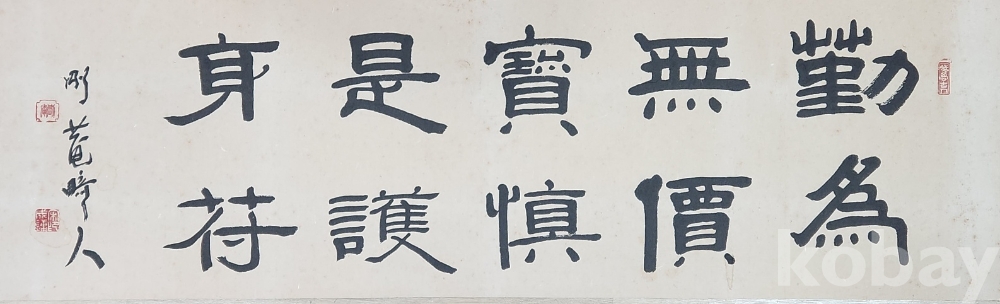 勤為
無價
寶慎
是護
身符
剛菴畸人
kobay